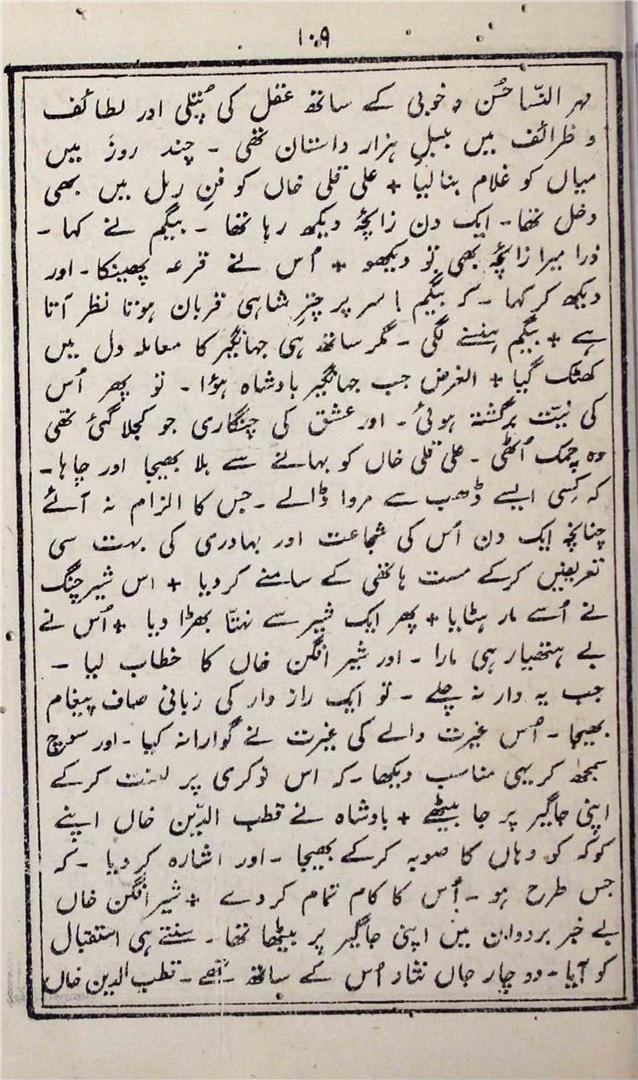 ۱۰۹
مہر النّسا حُسن و خوبی کے ساتھ عقل کی پُتلی اور لطائف
و ظرائف میں بلبل ہزار داستان تھی - چند روز میں
میاں کو غلام بنا لیا + علی قلی خاں کو فن رمل میں بھی
دخل تھا - ایک دن زائچۂ دیکھ رہا تھا - بیگم نے کہا -
ذرا میرا زائچۂ بھی تو دیکھو + اُس نے قرعہ پھینکا - اور
دیکھ کر کہا - کہ بیگم ! سر پر چترِ شاہی قربان ہوتا نظر آتا
ہے + بیگم ہنسنے لگی - مگر ساتھ ہی جہانگیر کا معاملہ دل میں
کھٹک گیا + الغرض جب جہانگیر بادشاہ ہوُا - تو پھر اُس
کی نیّت برگشتہ ہوئی - اور عشق کی چنگاری جو کجلا گئی تھی
وہ چمک اُٹھی - علی قلی خاں کو بہانے سے بلا بھیجا اور چاہا -
کہ کِسی ایسے ڈھب سے مروا ڈالے - جس کا الزام نہ آئے
چنانچہ ایک دن اُس کی شجاعت اور بہادری کی بہت سی
تعریفیں کرکے مست ہاتھی کے سامنے کر دیا + اس شیر جنگ
نے اُسے مار ہٹایا + پھر ایک شیر سے نہتّا بھڑا دیا + اُس نے
بے ہتھیار ہی مارا - اور شیر افگن خاں کا خطاب لیا -
جب یہ وار نہ چلے - تو ایک راز دار کی زبانی صاف پیغام
بھیجا - اُس غیرت والے کی غیرت نے گوارا نہ کیا - اور سوچ
سمجھ کر یہی مناسب دیکھا - کہ اس نوکری پر لعنت کرکے
اپنی جاگیر پر جا بیٹھے + بادشاہ نے قطب الدّین خاں اپنے
کوکہ کو وہاں کا صوبہ کرکے بھیجا - اور اشارہ کر دیا - کہ
جس طرح ہو - اُس کا کام تمام کر دے + شیر افگن خاں
بے خبر بردوان میں اپنی جاگیر پر بیٹھا تھا - سنتے ہی استقبال
کو آیا - دو چار جاں نثار اُس کے ساتھ تھے - قطب الدین خاں